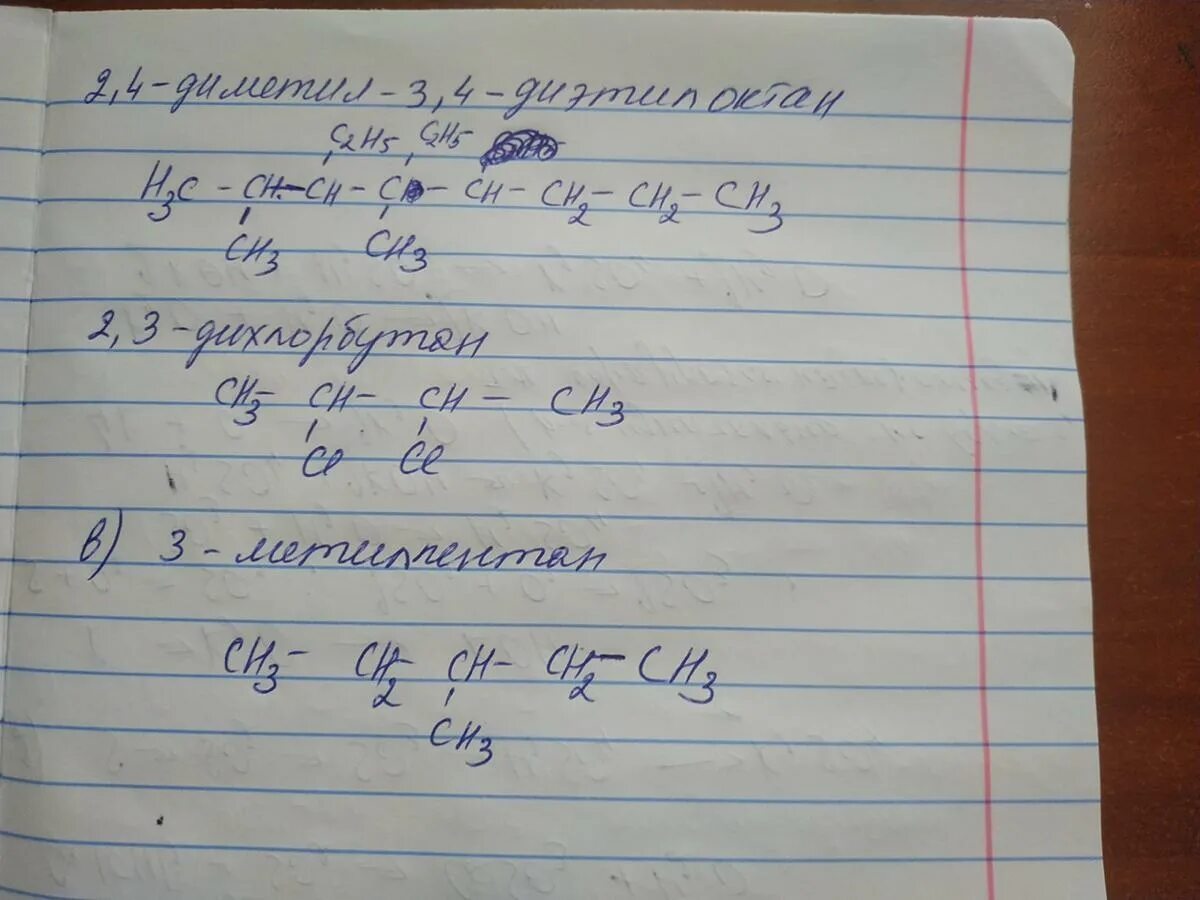 2,4-диметил-3,4-диэтилоктан
C2H5 C2H5
H3C - CH - CH - C - CH - CH2 - CH2 - CH3
CH3 CH3
2,3-дихлорбутан
CH3 - CH - CH - CH3
Cl Cl
в) 3-метилпентан
CH3 - CH2 - CH - CH2 - CH3
CH3